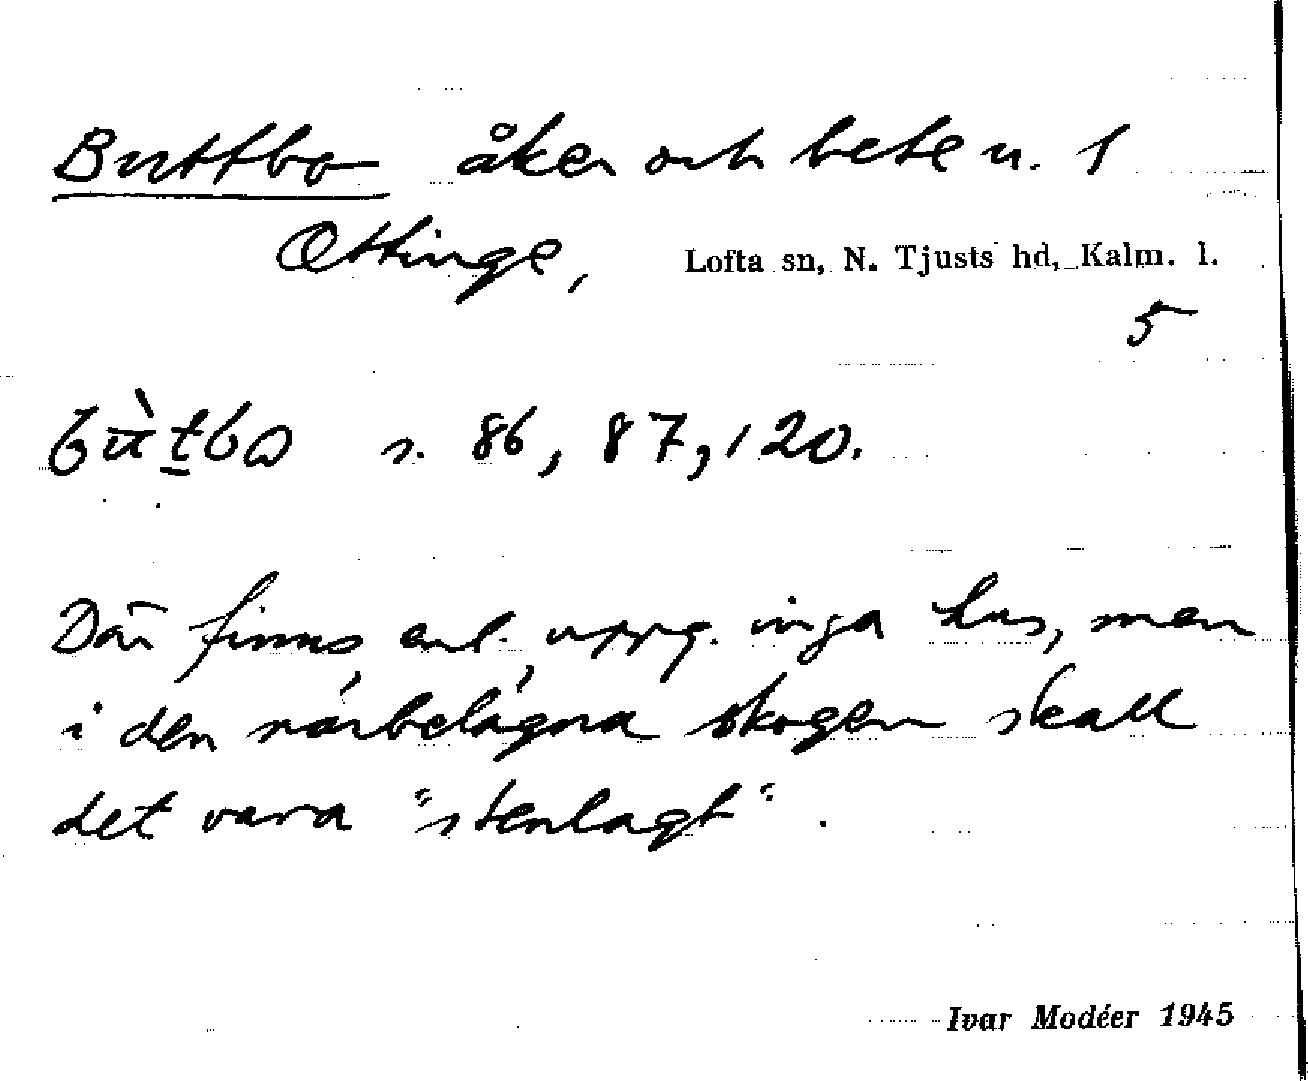 Buttbo åker och bete u. 1
Ottinge, Lofta sn, N. Tjusts hd, Kalm. l.
5
bùtbo s. 86, 87, 120.
Där finns, enl. uppg. inga hus, men
i den närbelägna skogen skall
det vara "stenlagt".
Ivar Modéer 1945